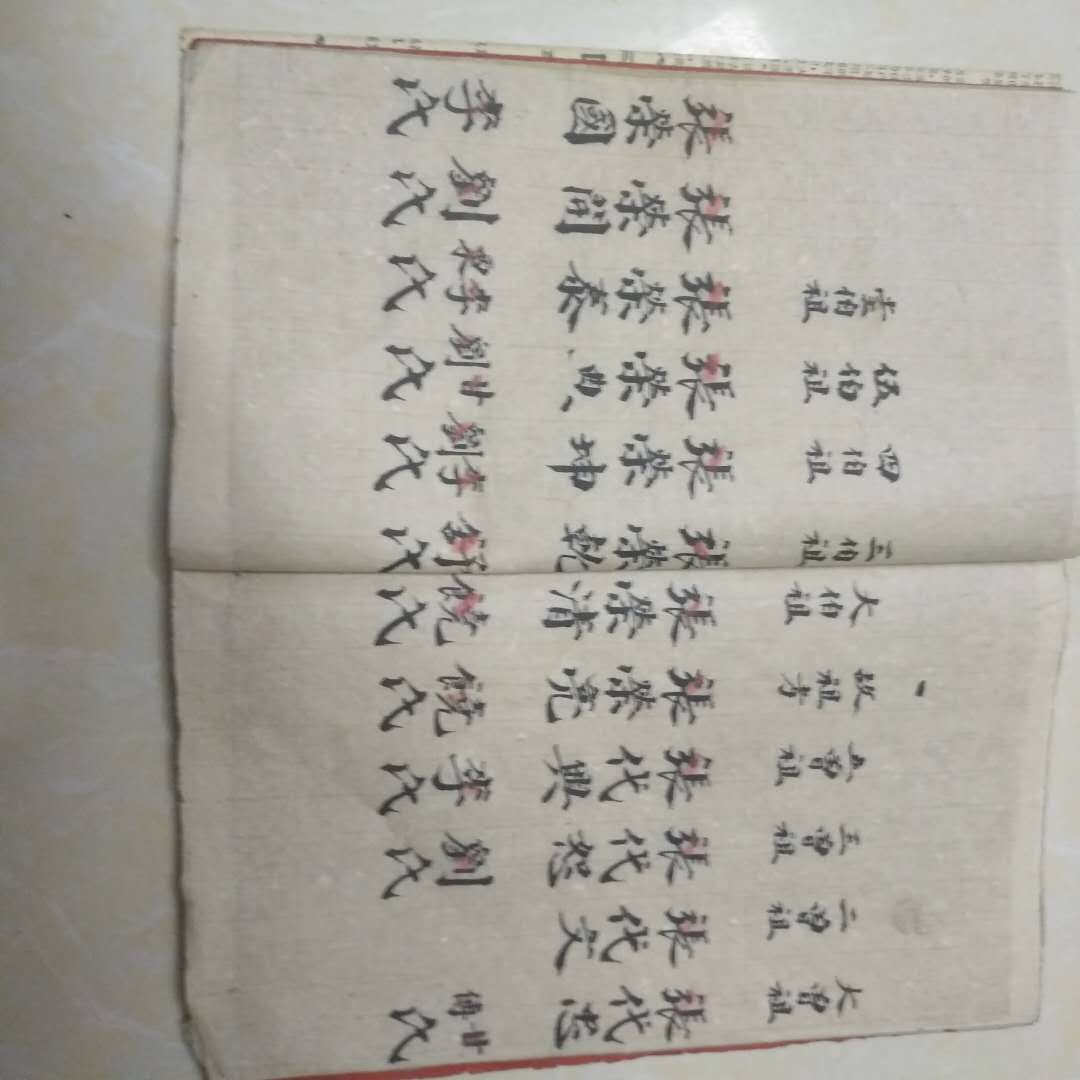 大曾祖 張代忠 甘傅氏
二曾祖 張代文
三曾祖 張代恕 劉氏
五曾祖 張代興 李氏
故祖考 張榮亮 饒氏
大伯祖 張榮清 饒氏
三伯祖 張榮乾 舒氏
四伯祖 張榮坤 李劉氏
伍伯祖 張榮典 甘劉氏
堂伯祖 張榮泰 李氏
張榮開 劉氏
張榮國 李氏